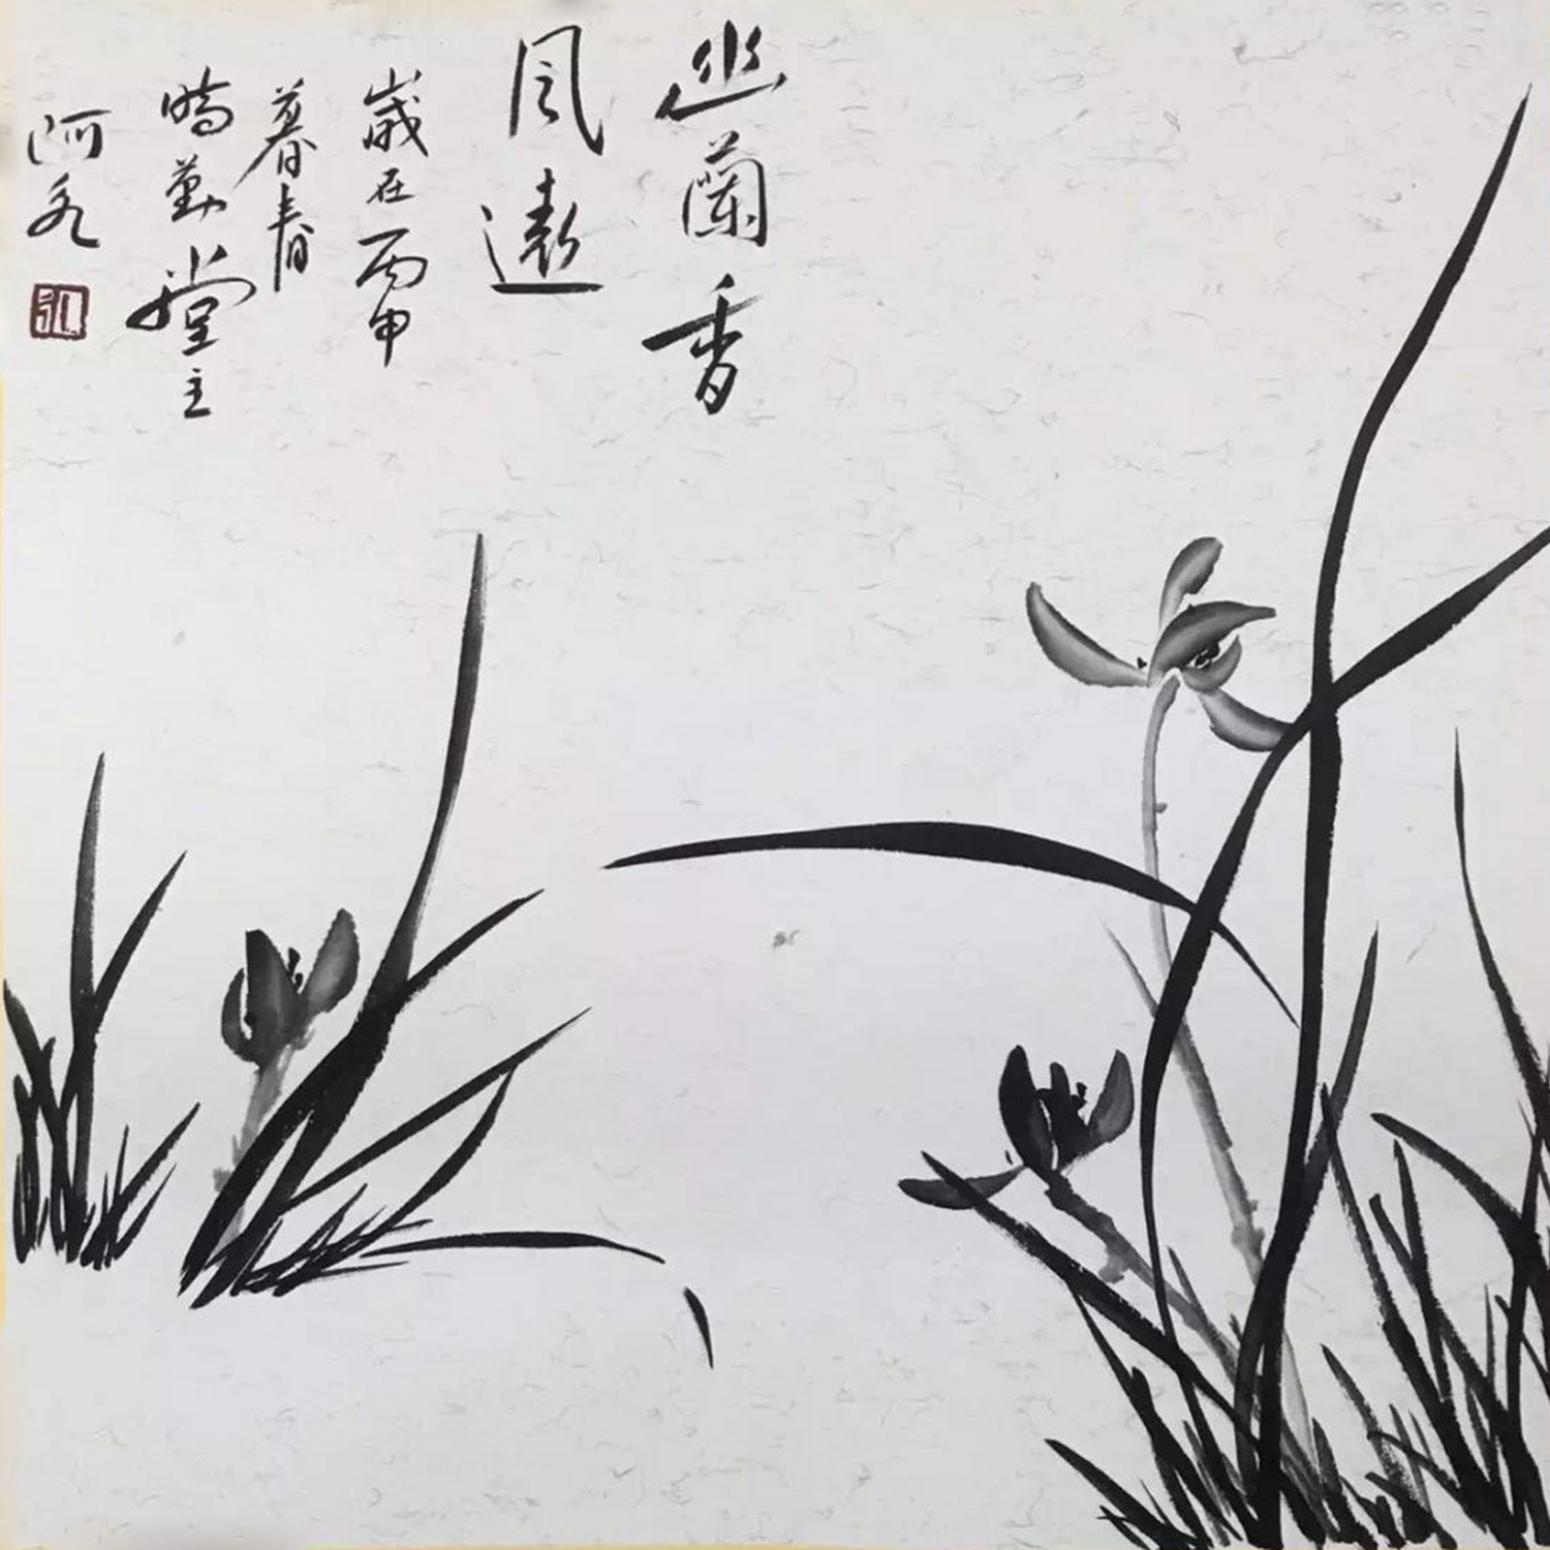 幽蘭香
風遠
歲在丙申
暮春
勤堂主
阿